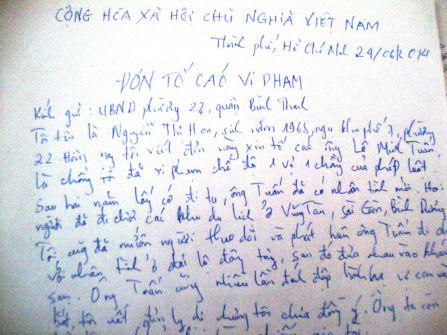 CỘNG HÒA XÃ HỘI CHỦ NGHĨA VIỆT NAM
Thành phố, Hồ Chí Minh 29/
ĐƠN TỐ CÁO VI PHẠM
Kính gửi: UBND phường 22, quận Bình Thạnh
Tôi tên là Nguyễn Thị Hoa, sinh năm 1965, ngụ khu phố 7, phường
22 Hôm nay tôi viết đơn này xin tố cáo ông Lê Minh Tuấn
là chồng tôi đã vi phạm chế độ 1 vợ 1 chồng của pháp luật.
Sau hai năm lấy cớ đi tu, ông Tuấn đã có nhân tình mới. Hai
người đã đi chơi các khu du lịch ở Vũng Tàu, Sài Gòn, Bình Dương
Tôi cũng đã mướn người theo dõi và phát hiện ông Tuấn đi
với nhân tình ở đó là đông tay, sau đó đưa nhau vào khách
sạn. Ông Tuấn cũng nhiều lần đánh đập vợ con
tôi viết đơn ly dị nhưng tôi chưa đồng ý. Ông ta còn